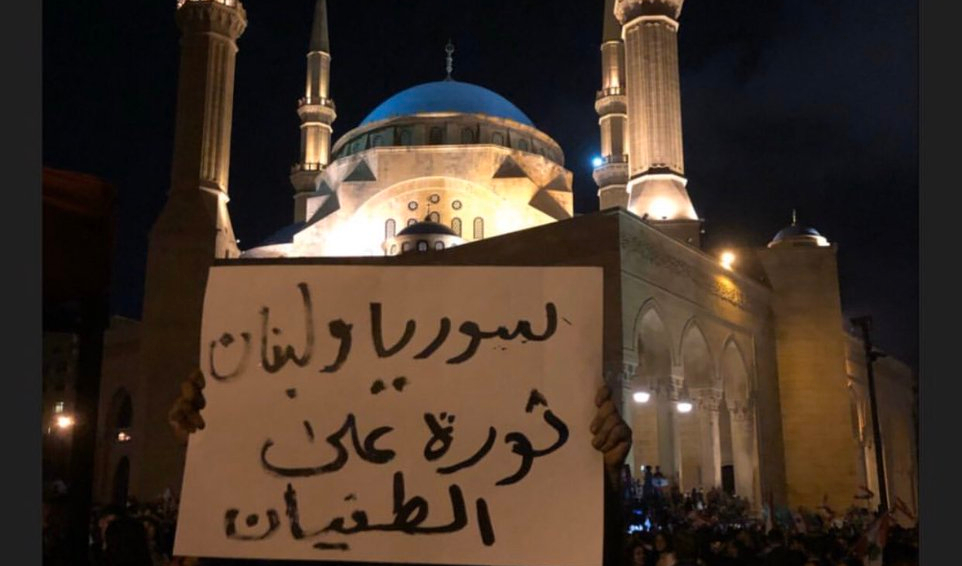 سوريا ولبنان
ثورة على
الطغيان